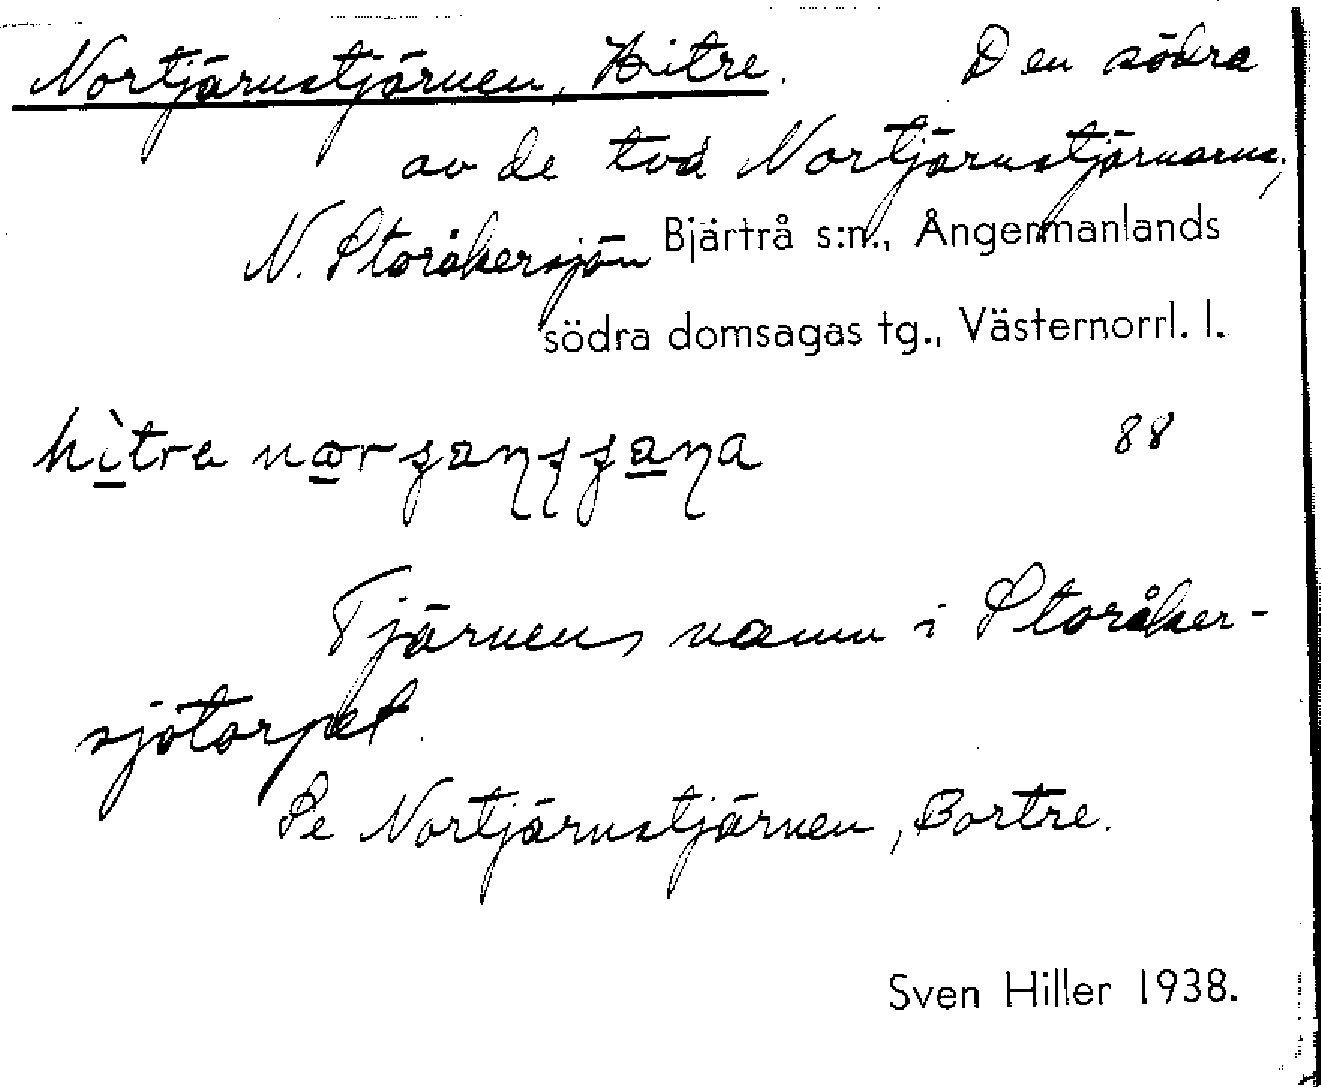 Nortjärnstjärnen, Hitre. Den södra
av de två Nortjärnstjärnarna,
N. Storåkersjön Bjärtrå s:n., Ångermanlands
södra domsagas tg., Västernorrl. l.
88
Tjärnens namn i Storåker-
sjötorpet.
Se Nortjärnstjärnen, Bortre.
Sven Hiller 1938.